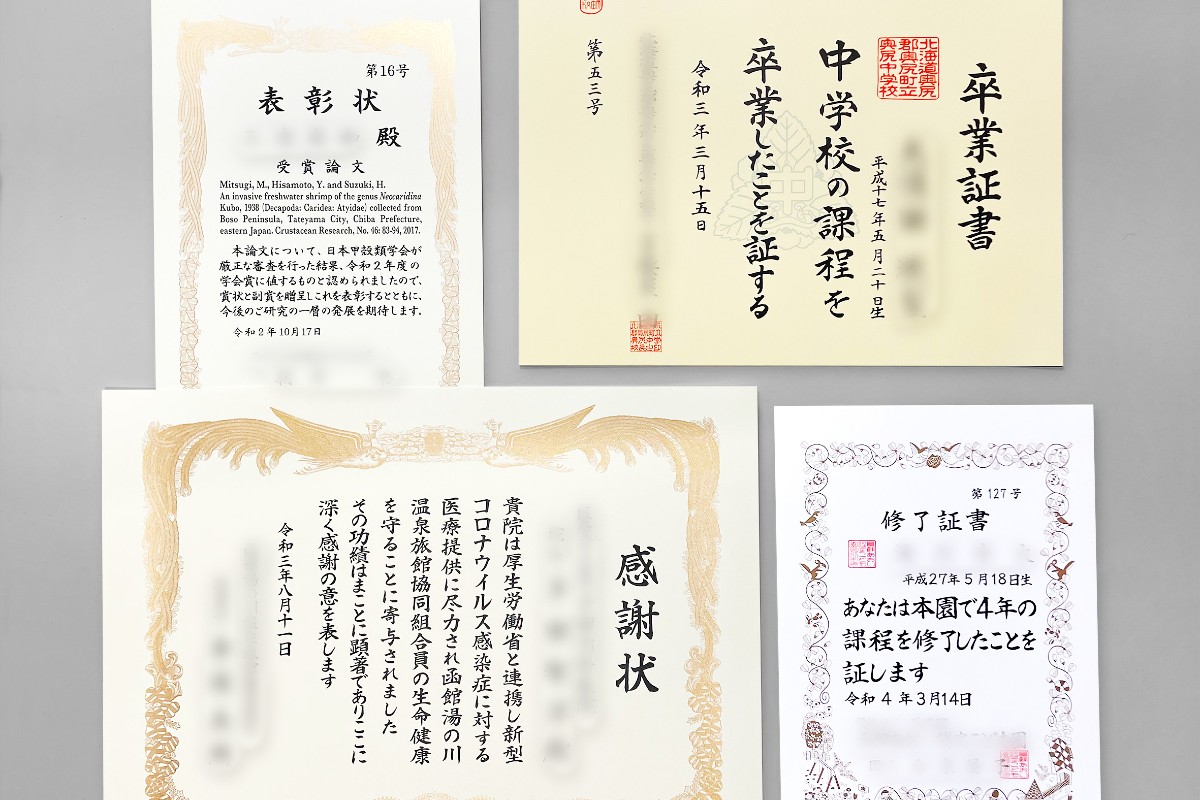 第16号
表彰状
殿
受賞論文
Mitsugi, M., Hisamoto, Y. and Suzuki, H.
An invasive freshwater shrimp of the genus Neocaridina
Kubo, 1938 (Decapoda: Caridea: Atyidae) collected from
Boso Peninsula, Tateyama City, Chiba Prefecture,
eastern Japan. Crustacean Research, No. 46: 83-94, 2017.
本論文について、日本甲殻類学会が
厳正な審査を行った結果、令和2年度の
学会賞に値するものと認められましたので、
賞状と副賞を贈呈しこれを表彰するとともに、
今後のご研究の一層の発展を期待します。
令和2年10月17日
卒業証書
北海道奥尻
郡奥尻町立
奥尻中学校
平成十七年五月二十日生
中学校の課程を
卒業したことを証する
令和三年三月十五日
第五三号
感謝状
貴院は厚生労働省と連携し新型
コロナウイルス感染症に対する
医療提供に尽力され函館湯の川
温泉旅館協同組合員の生命健康
を守ることに寄与されました
その功績はまことに顕著でありここに
深く感謝の意を表します
令和三年八月十一日
第127号
修了証書
平成27年5月18日生
あなたは本園で4年の
課程を修了したことを
証します
令和4年3月14日